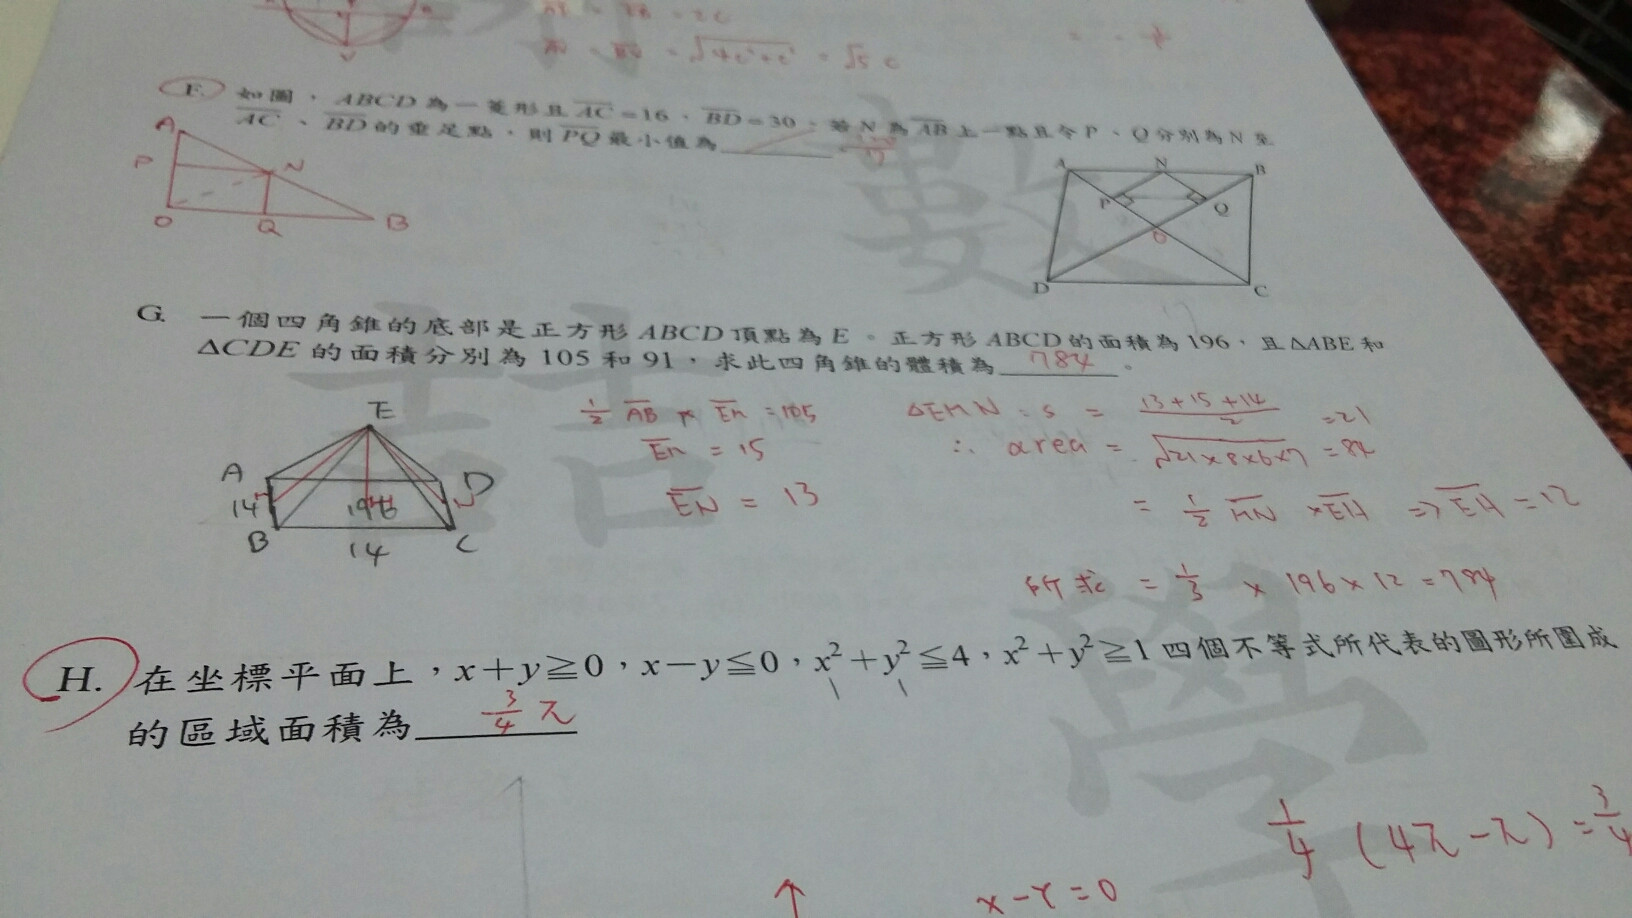 F. 如圖，ABCD為一菱形且AC=16、BD=30。若N為AB上一點且令P、Q分別為N至
AC、BD的垂足點，則PQ最小值為
A
P
N
O
Q
B
A
N
B
P
Q
O
D
C
G. 一個四角錐的底部是正方形ABCD頂點為E。正方形ABCD的面積為196，且△ABE和
△CDE的面積分別為105和91，求此四角錐的體積為784。
E
A
D
14
196
B
14
C
½ AB × Em = 105
Em = 15
EN = 13
△EMN : s = (13+15+14)/2 = 21
∴ area = √21×8×6×7 = 84
= ½ MN × EH ⇒ EH = 12
所求 = ⅓ × 196 × 12 = 784
H. 在坐標平面上，x+y≧0，x−y≦0，x²+y²≦4，x²+y²≧1四個不等式所代表的圖形所圍成
的區域面積為 ¾π
¼ (4π−π) = ¾
x−y=0